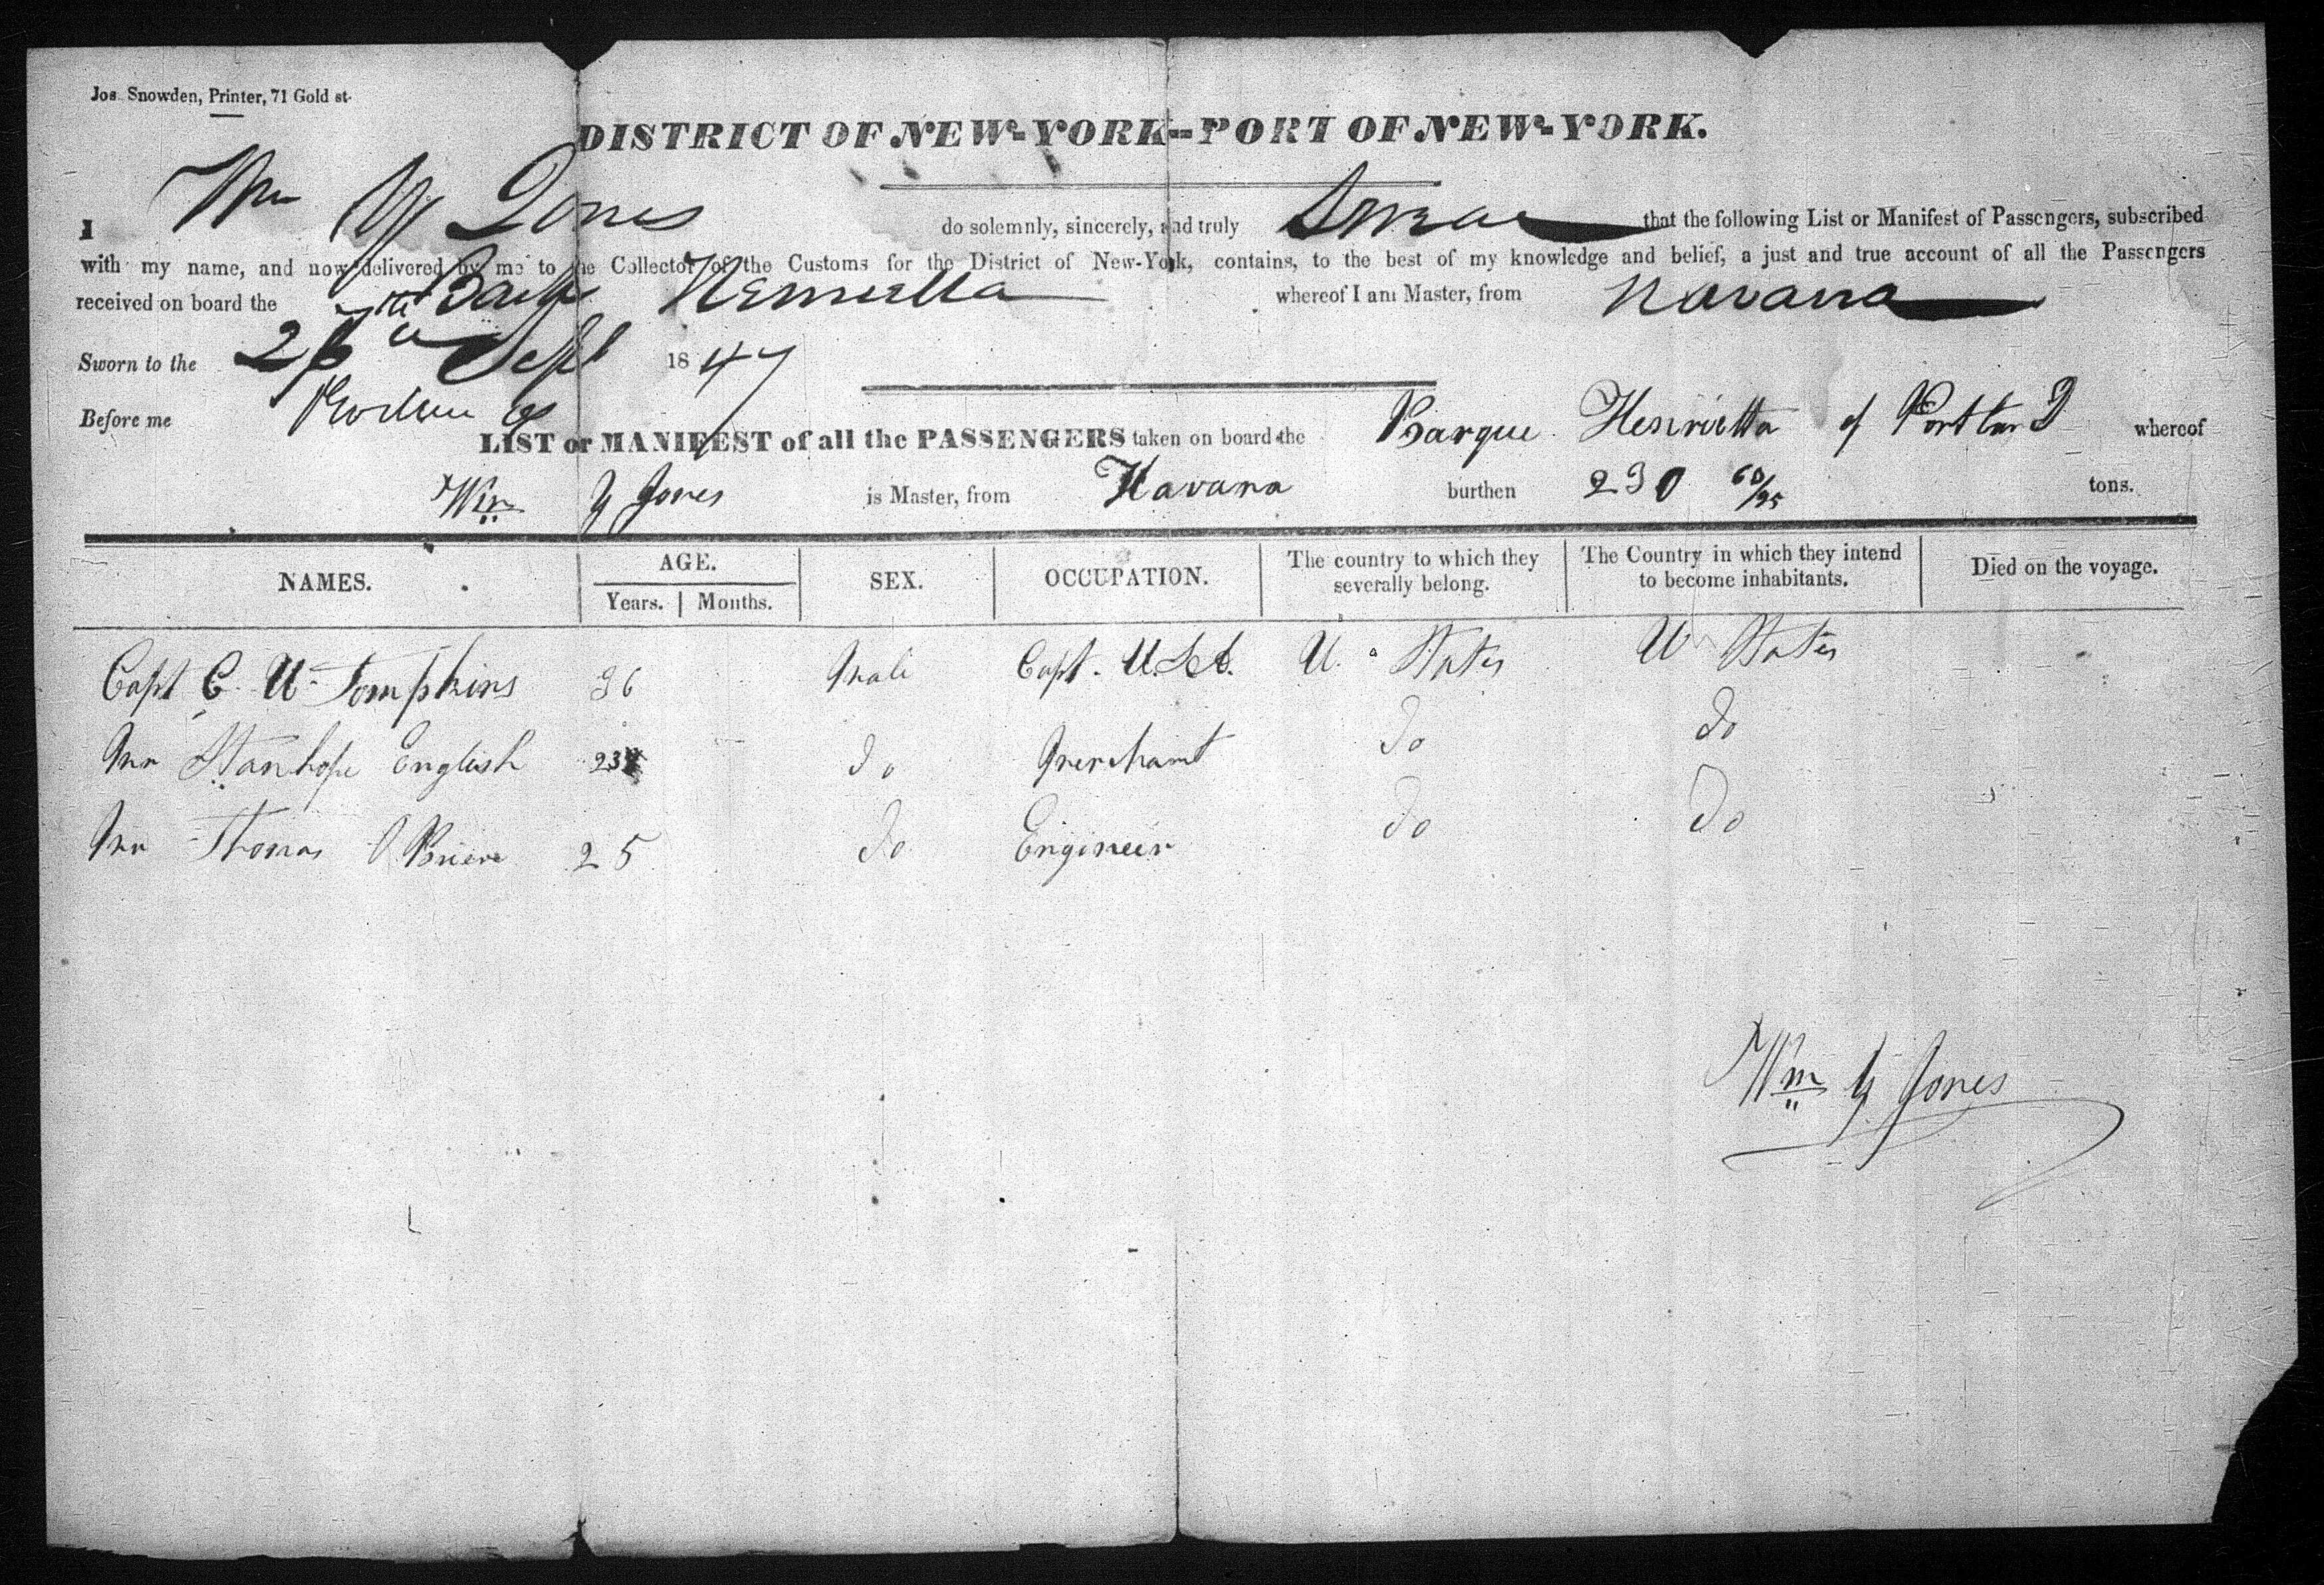 Jos. Snowden, Printer, 71 Gold st.
DISTRICT OF NEW-YORK--PORT OF NEW-YORK.
I Wm Y Jones do solemnly, sincerely, and truly Swear that the following List or Manifest of Passengers, subscribed
with my name, and now delivered by me to the Collector of the Customs for the District of New-York, contains, to the best of my knowledge and belief, a just and true account of all the Passengers
received on board the Barque Henrietta whereof I am Master, from Havana
Sworn to the Sept 1847
Before me
LIST or MANIFEST of all the PASSENGERS taken on board the Barque Henrietta of Portland whereof
Wm Y Jones is Master, from Havana burthen 230 60/95 tons.
NAMES. AGE. SEX. OCCUPATION. The country to which they severally belong. The Country in which they intend to become inhabitants. Died on the voyage.
Years. Months.
Capt C. W Tompkins 36 Male Capt. U.S.A. U. States U States
Mr Stanhope English 23 do Merchant do do
Mr Thomas O Briene 25 do Engineer do do
Wm Y Jones